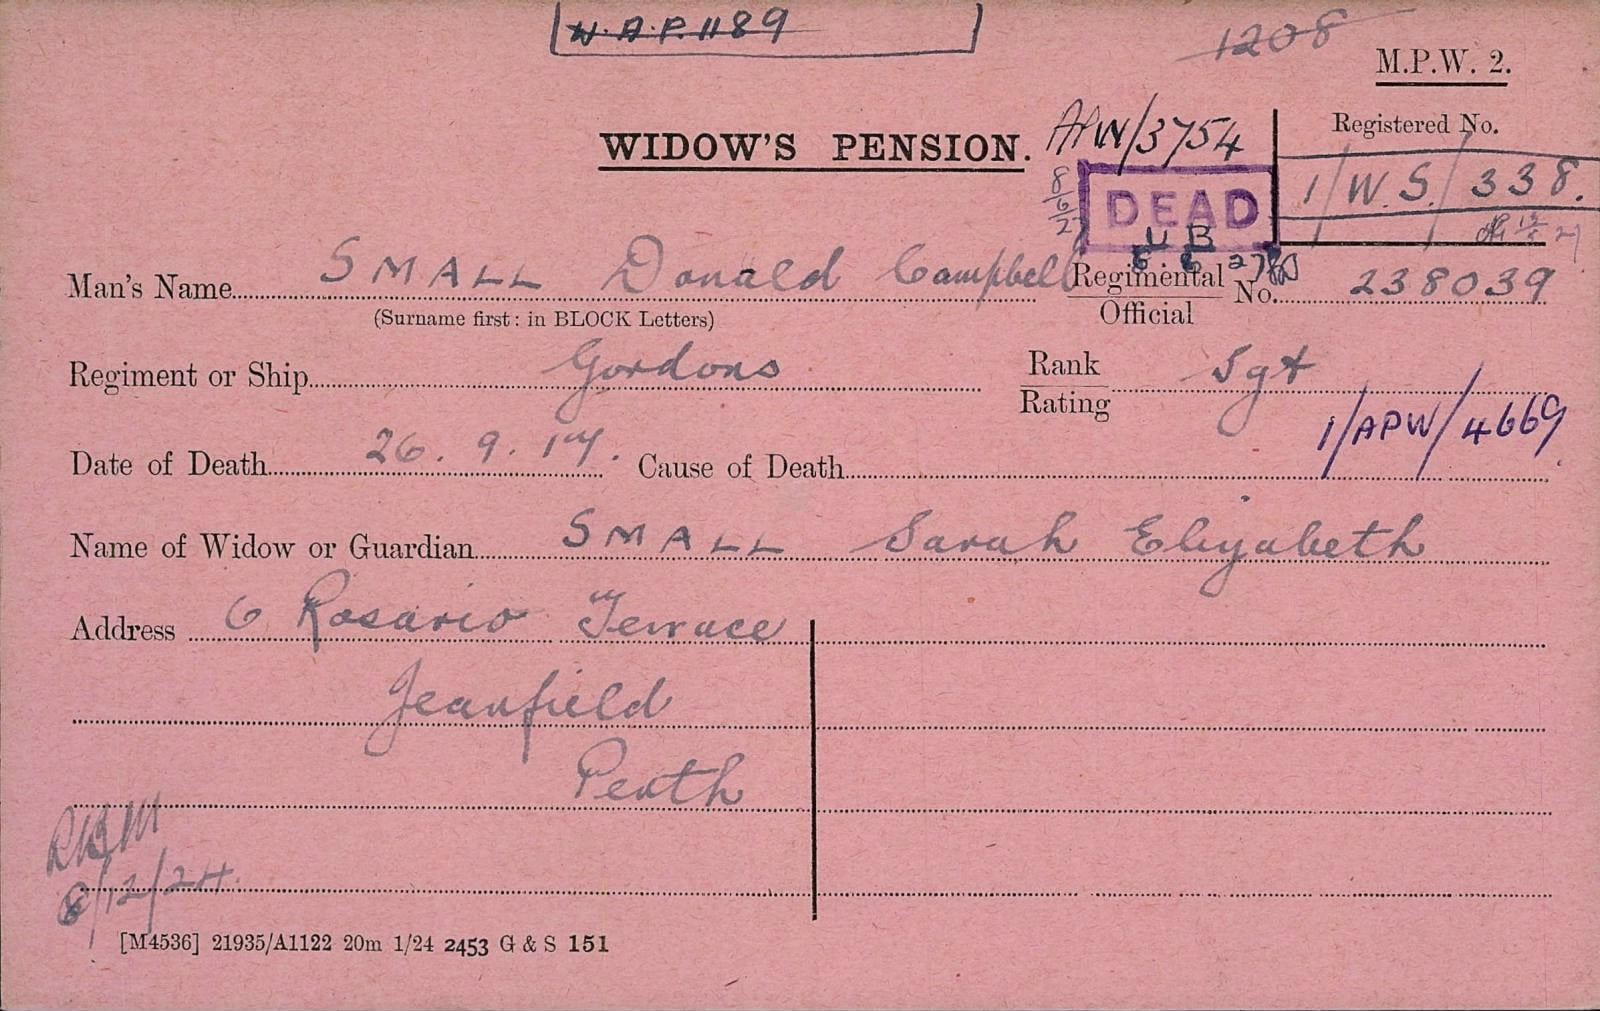 W.A.P. 1189
1208
M.P.W. 2.
WIDOW'S PENSION.
APW/3754
Registered No.
1/W.S./338.
8/6/27
DEAD
Man's Name SMALL Donald Campbell
(Surname first: in BLOCK Letters)
Regimental
Official
No. 238039
Regiment or Ship Gordons
Rank
Rating
Sgt
1/APW/4669
Date of Death 26.9.17. Cause of Death
Name of Widow or Guardian SMALL Sarah Elizabeth
Address 6 Rosario Terrace
Jeanfield
Perth
8/12/24.
[M4536] 21935/A1122 20m 1/24 2453 G & S 151